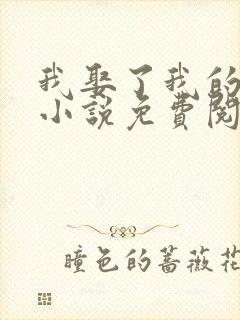 我娶了我的
小说免费阅
瞳色的蔷薇花